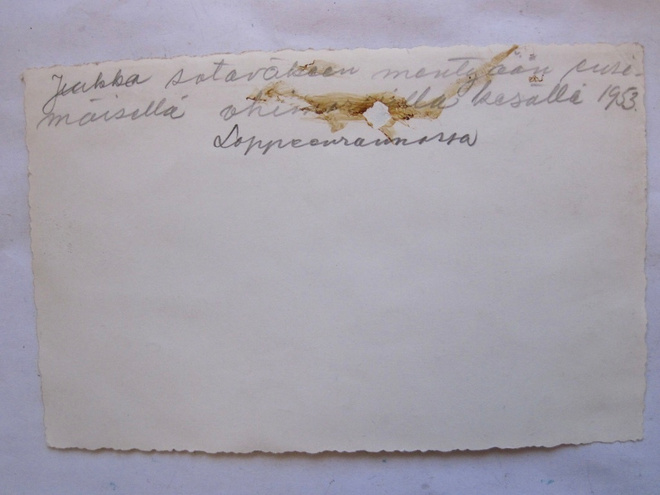 Jukka sotaväkeen mentyään ensi-
mäisellä kesällä 1953.
Lappeenrannassa